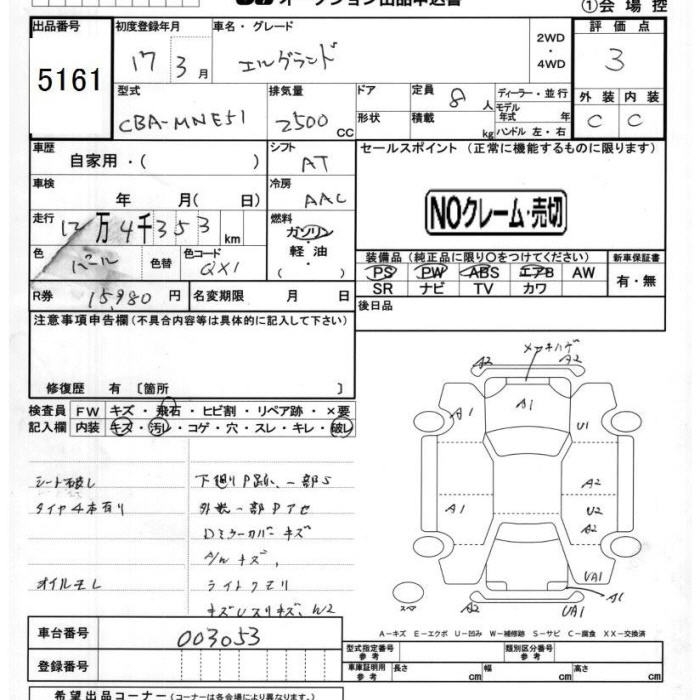 オークション出品申込書 ①会場控
出品番号 初度登録年月 車名・グレード 2WD・4WD 評価点
5161 17 3月 エルグランド 3
型式 排気量 ドア 定員 8人 ディーラー・並行 外装 内装
CBA-MNE51 2500cc 形状 積載 kg モデル年式 年 ハンドル 左・右 C C
車歴 自家用・( ) シフト AT セールスポイント (正常に機能するものに限ります)
車検 年 月( 日) 冷房 AAC
NOクレーム・売切
走行 12万4千353km 燃料 ガソリン・軽油・( )
色 パール 色替 色コード QX1
装備品 (純正品に限り○をつけてください) 新車保証書
PS PW ABS エアB AW 有・無
SR ナビ TV カワ
R券 15980円 名変期限 月 日
後日品
注意事項申告欄(不具合内容等は具体的に記入して下さい)
修復歴 有 〔箇所 〕
検査員 FW キズ・飛石・ヒビ割・リペア跡・×要
記入欄 内装 キズ・汚レ・コゲ・穴・スレ・キレ・破レ
シート破レ 下廻りP跡、一部S
タイヤ4本有り 外装一部Pアセ
Dミラーカバーキズ
A/wキズ、
オイルモレ ライトクモリ
キズUスリキズ、W2
A2 メッキハゲ A2
A1 A1 U1
A2
A1 U2
A2
UA1
スマ A2 UA1 A1
A-キズ E-エクボ U-凹み W-補修跡 S-サビ C-腐食 XX-交換済
車台番号 003053
登録番号
型式指定番号 参考 類別区分番号 参考
車庫証明用 参考 長さ cm 幅 cm 高さ cm
希望出品コーナー (コーナーは各会場により異なります。)